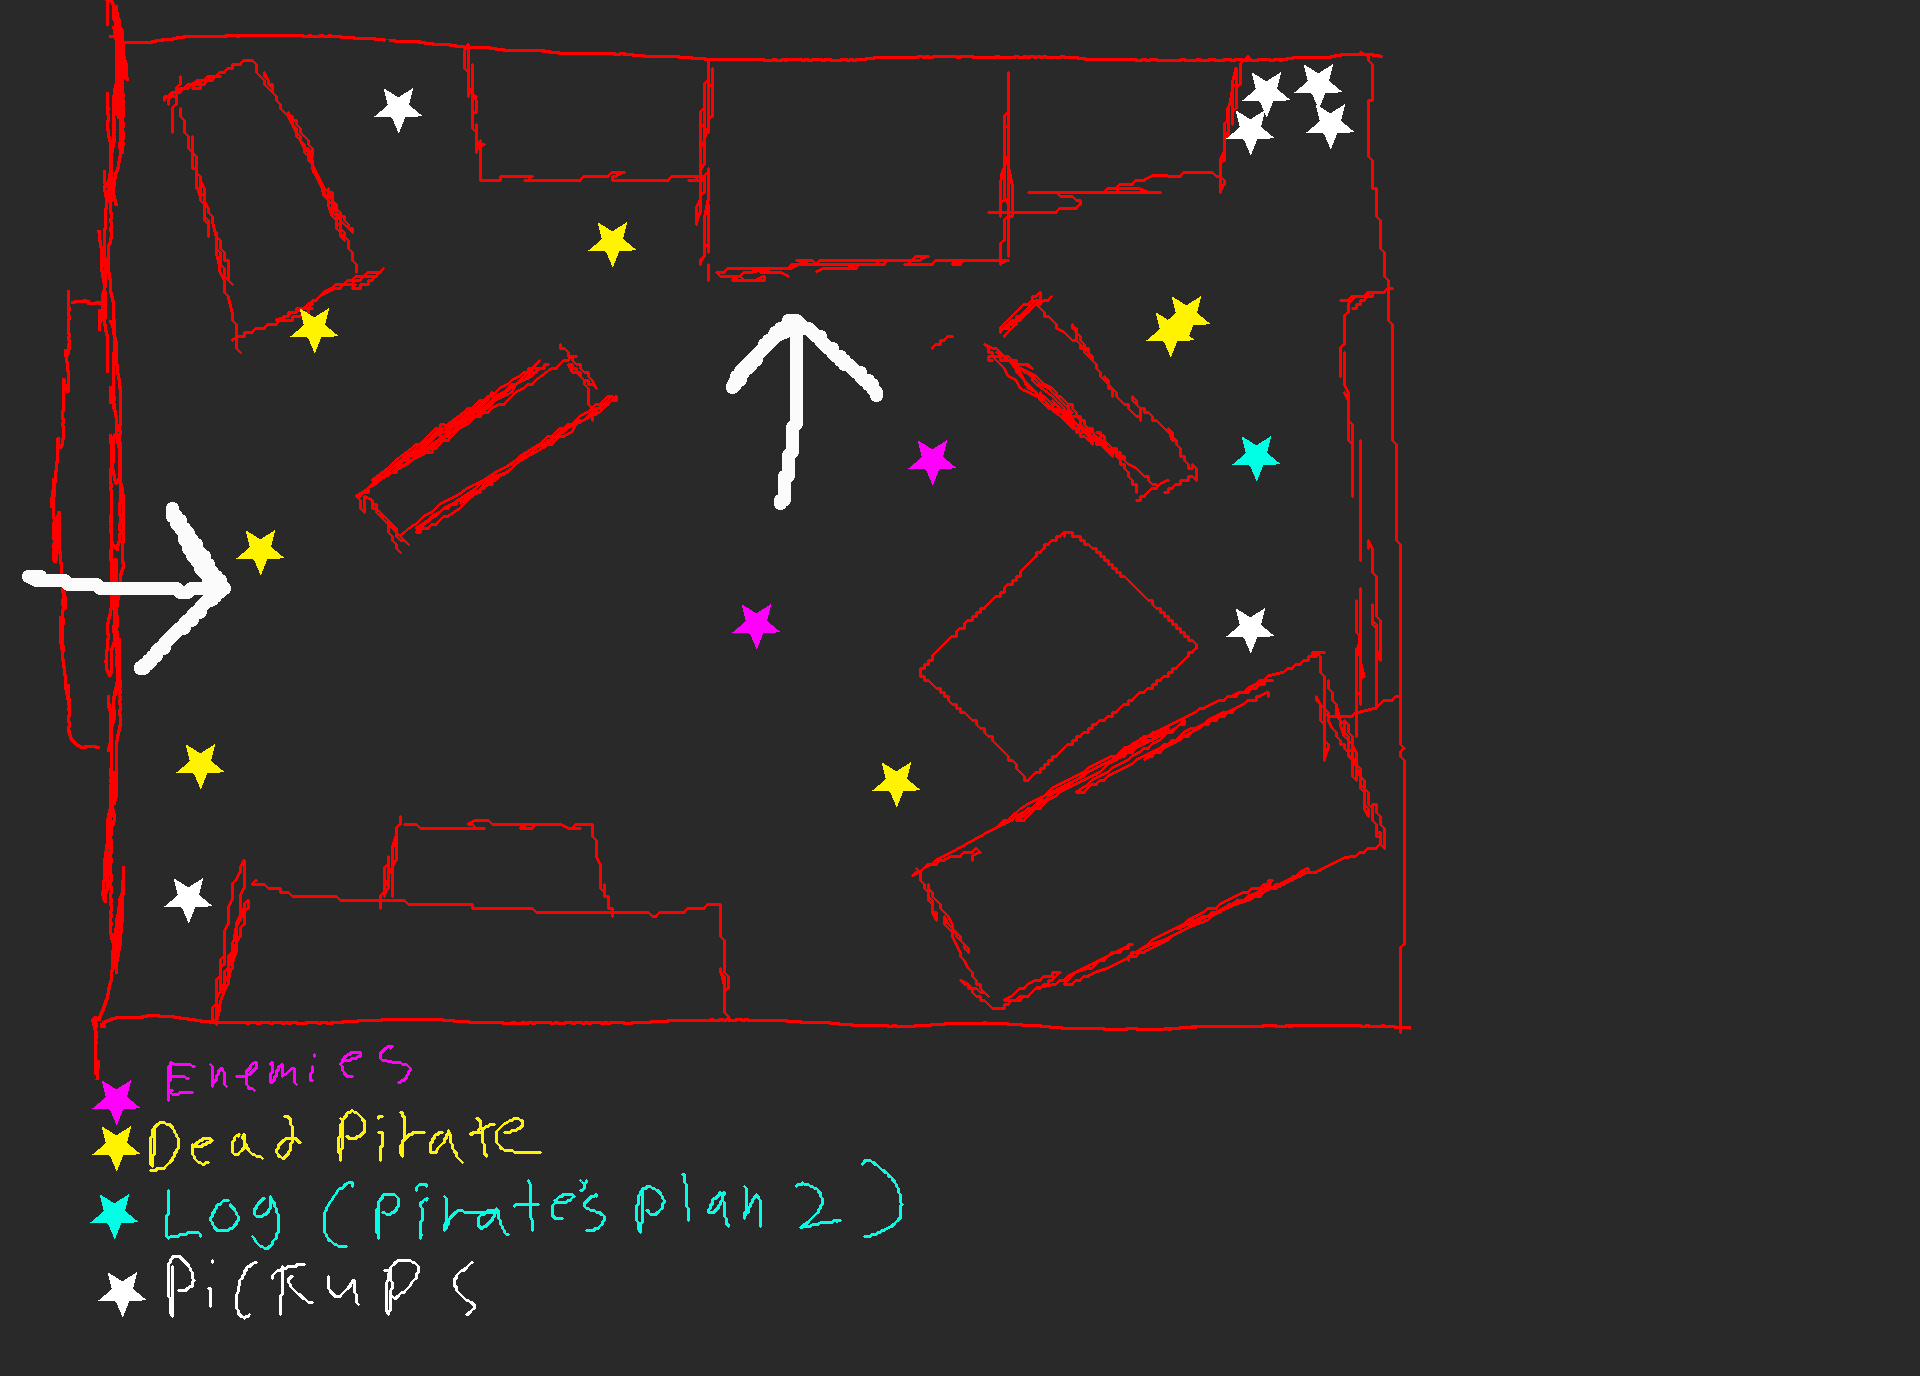 Enemies
Dead Pirate
Log (pirate's plan 2)
Pickups